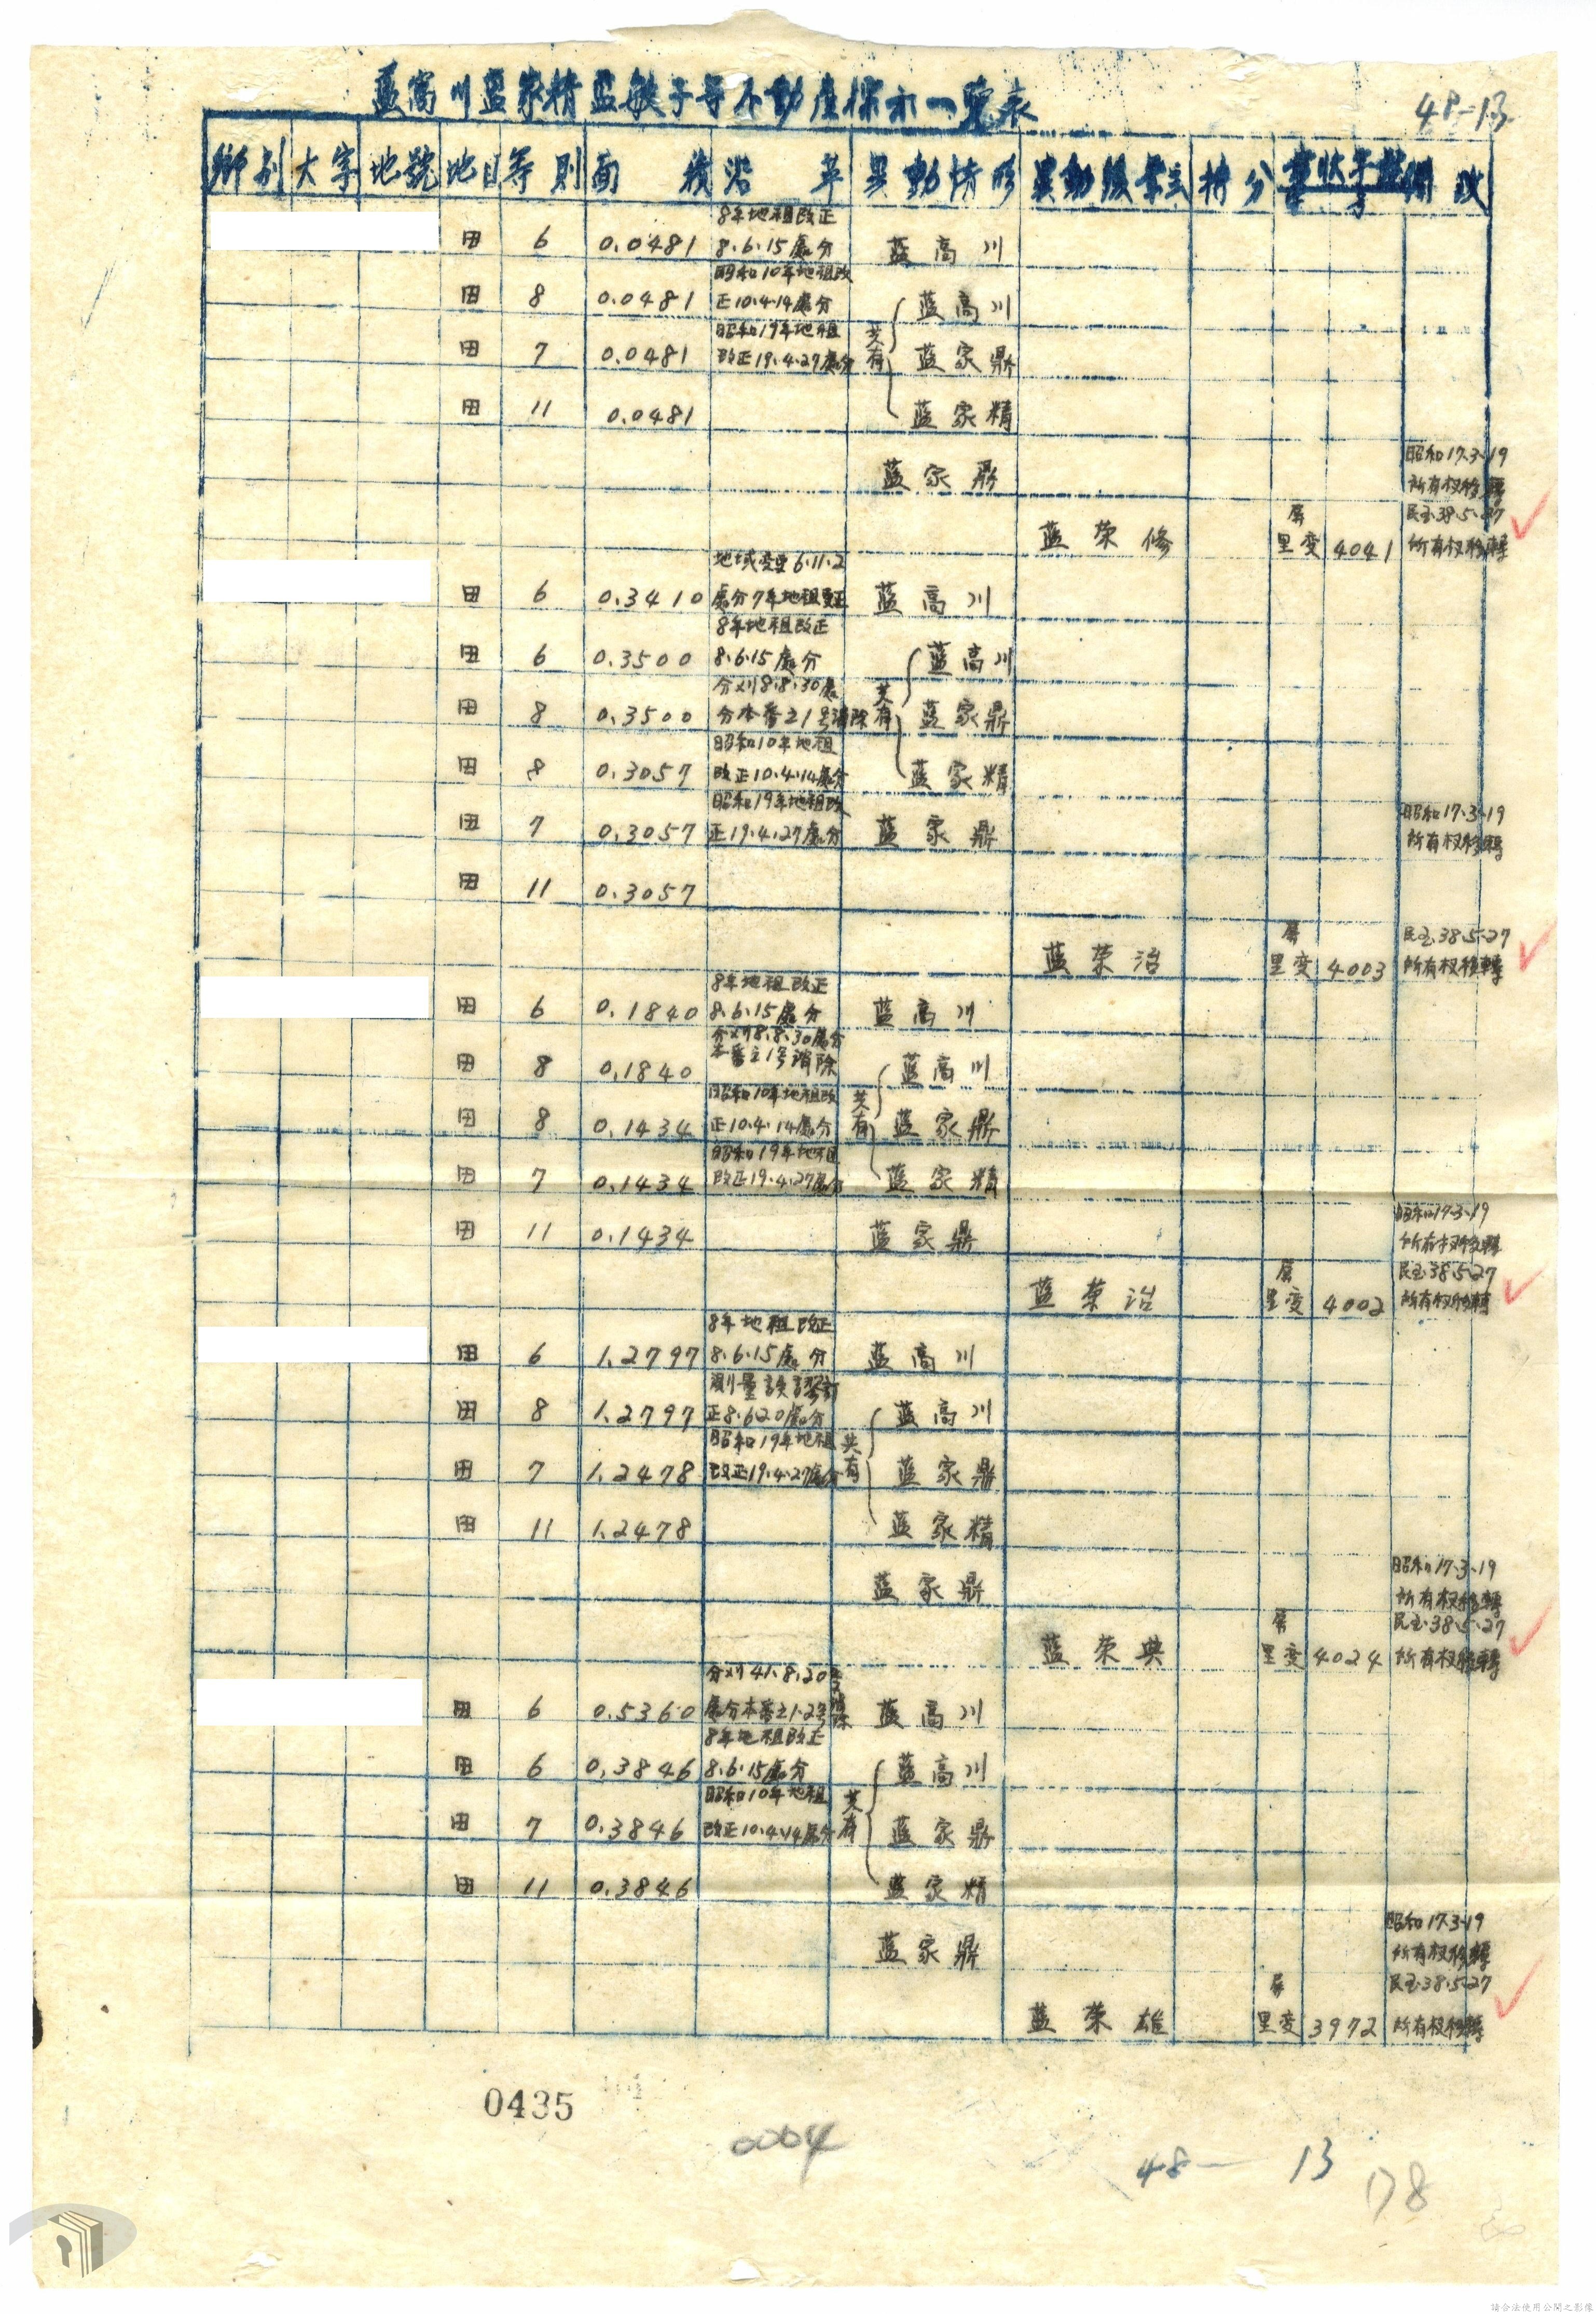 藍高川藍家精藍敏子等不動產標示一覽表
48-13
鄉別 大字 地號 地目 等則 面積 沿革 異動情形 異動後業主 持分 書狀字號 備攷
8年地租改正
田 6 0.0481 8.6.15處分 藍高川
昭和10年地租改
田 8 0.0481 正10.4.14處分 藍高川
昭和19年地租 共有
田 7 0.0481 改正19.4.27處分 藍家鼎
田 11 0.0481 藍家精
昭和17.3.19
藍家鼎 所有权移轉
屏 民国38.5.27
藍荣修 里变 4041 所有权移轉
地域变更6.11.2
田 6 0.3410 處分7年地租更正 藍高川
8年地租改正
田 6 0.3500 8.6.15處分 藍高川
分割8.8.30處 共有
田 8 0.3500 分本番之1号消除 藍家鼎
昭和10年地租
田 8 0.3057 改正10.4.14處分 藍家精
昭和19年地租改 昭和17.3.19
田 7 0.3057 正19.4.27處分 藍家鼎 所有权移轉
田 11 0.3057
屏 民国38.5.27
藍荣治 里变 4003 所有权移轉
8年地租改正
田 6 0.1840 8.6.15處分 藍高川
分割8.8.30處分
田 8 0.1840 本番之1号消除 藍高川
昭和10年地租改 共有
田 8 0.1434 正10.4.14處分 藍家鼎
昭和19年地租
田 7 0.1434 改正19.4.27處分 藍家精
昭和17.3.19
田 11 0.1434 藍家鼎 所有权移轉
屏 民国38.5.27
藍荣治 里变 4002 所有权移轉
8年地租改正
田 6 1.2797 8.6.15處分 藍高川
測量誤謬訂
田 8 1.2797 正8.6.20處分 藍高川
昭和19年地租 共有
田 7 1.2478 改正19.4.27處分 藍家鼎
田 11 1.2478 藍家精
昭和17.3.19
藍家鼎 所有权移轉
屏 民国38.5.27
藍荣典 里变 4024 所有权移轉
分割41.8.20
田 6 0.5360 處分本番之1.2号消除 藍高川
8年地租改正
田 6 0.3846 8.6.15處分 藍高川
昭和10年地租 共有
田 7 0.3846 改正10.4.14處分 藍家鼎
田 11 0.3846 藍家精
昭和17.3.19
藍家鼎 所有权移轉
屏 民国38.5.27
藍荣雄 里变 3972 所有权移轉
0435
0004
48— 13
178
請合法使用公開之影像